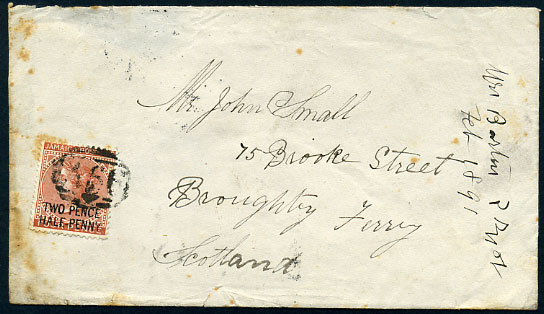 Mr. John Small
75 Brooke Street
Broughty Ferry
Scotland
Feb 1891
JAMAICA
TWO PENCE
HALF-PENNY